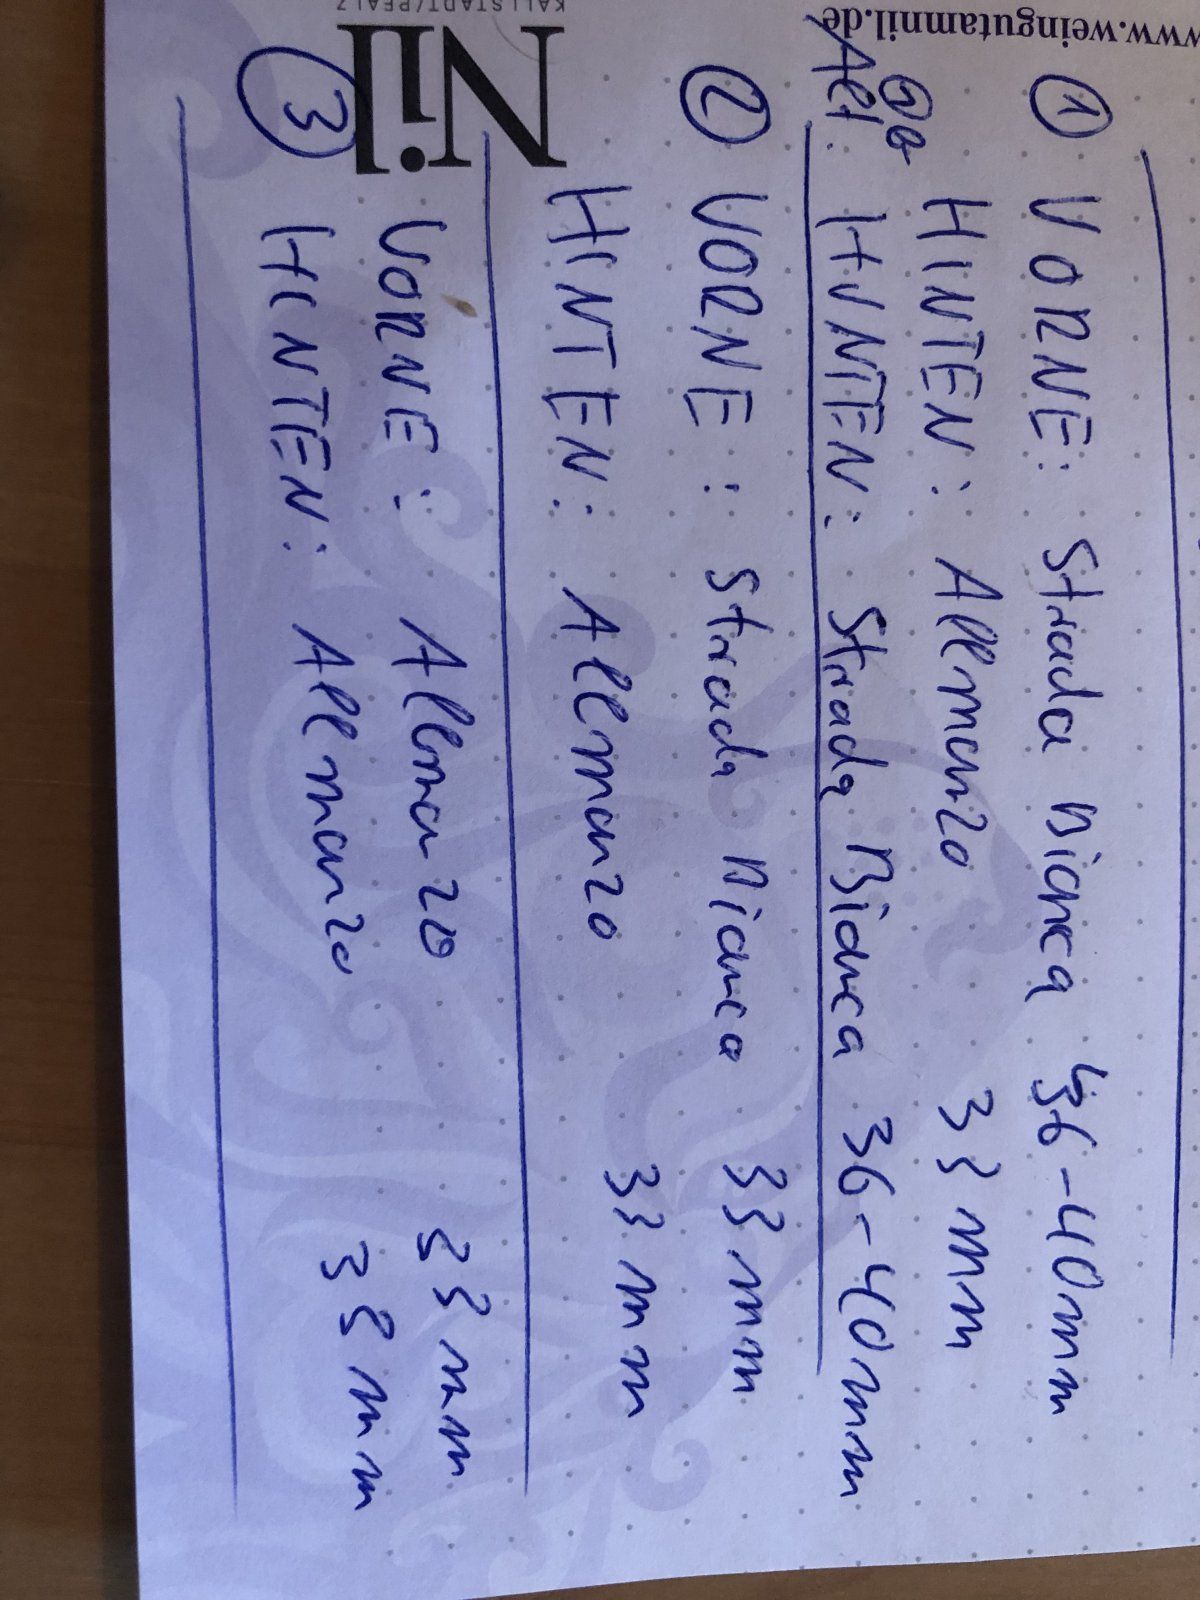 www.weingutamnil.de
① VORNE: Strada Bianca 36-40mm
HINTEN: Allmanzo 33 mm
Alt: HINTEN: Strada Bianca 36-40mm
② VORNE: Strada Bianca 33 mm
HINTEN: Allmanzo 33 mm
Nil
KALLSTADT/PFALZ
③ VORNE: Allmanzo 33 mm
HINTEN: Allmanzo 33 mm